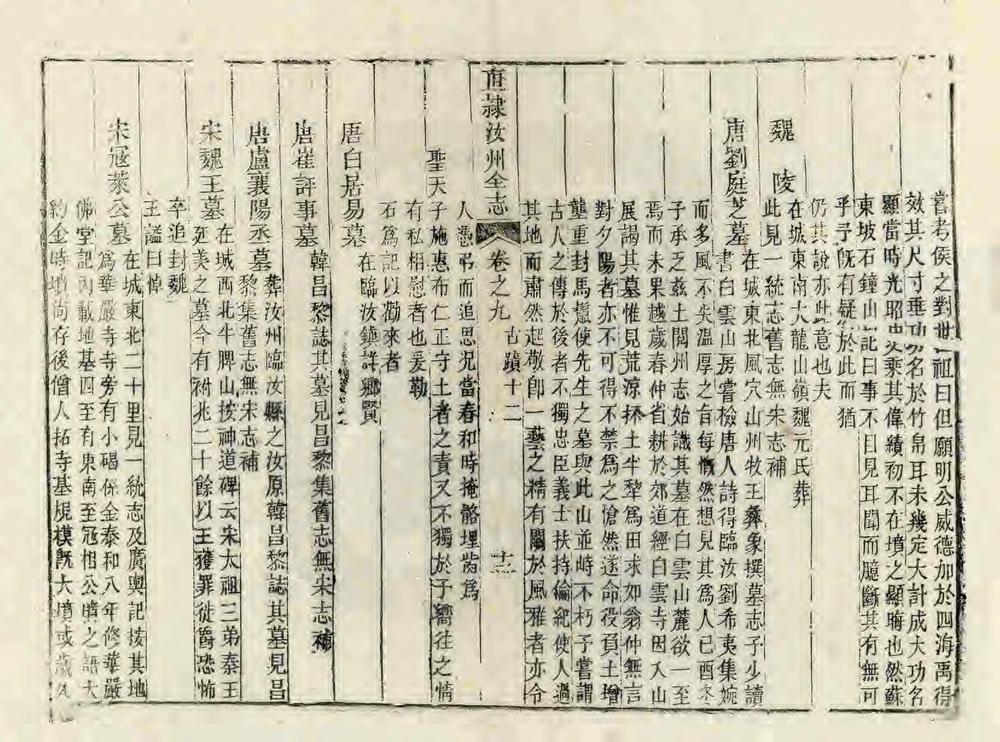 嘗考侯之對世祖曰但願明公威德加於四海禹得
效其尺寸垂功名於竹帛耳未幾定大計成大功名
顯當時光昭史乘其偉績初不在墳之顯晦也然蘇
東坡石鐘山記曰事不目見耳聞而臆斷其有無可
乎予既有疑於此而猶
仍其說亦此意也夫
魏陵
在城東南大龍山嶺魏元氏葬
此見一統志舊志無宋志補
唐劉庭芝墓
在城東北風穴山州牧王彝象撰墓志予少讀
書白雲山房嘗檢唐人詩得臨汝劉希夷集婉
而多風不失溫厚之旨每慨然想見其爲人已酉冬
子承乏茲土閱州志始識其墓在白雲山麓欲一至
焉而未果越歲春仲省耕於郊道經白雲寺因入山
展謁其墓惟見荒涼抔土半犂爲田求如翁仲無言
對夕陽者亦不可得不禁爲之愴然遂命役負土增
壟重封馬鬣使先生之墓與此山並峙不朽予嘗謂
古人之傳於後者不獨忠臣義士扶持倫紀使人過
其地而肅然起敬卽一藝之精有關於風雅者亦令
直隸汝州全志
卷之九
古蹟十二
十二
人憑弔而追思况當春和時掩骼埋胔爲
聖天子施惠布仁正守土者之責又不獨於予嚮往之情
有私相慰者也爰勒
石爲記以勸來者
唐白居易墓
在臨汝鎮詳鄉賢
唐崔評事墓
韓昌黎誌其墓見昌黎集舊志無宋志補
唐盧襄陽丞墓
葬汝州臨汝縣之汝原韓昌黎誌其墓見昌
黎集舊志無宋志補
宋魏王墓
在城西北牛脾山按神道碑云宋太祖三弟秦王
廷美之墓今有祔兆二十餘以王獲罪徙爵恐怖
卒追封魏
王謚曰悼
宋冦萊公墓
在城東北二十里見一統志及廣輿記按其地
爲華嚴寺寺旁有小碣係金泰和八年修華嚴
佛堂記內載地基四至有東南至冦相公墳之語大
約金時墳尚存後僧人拓寺基規模既大墳或歲久